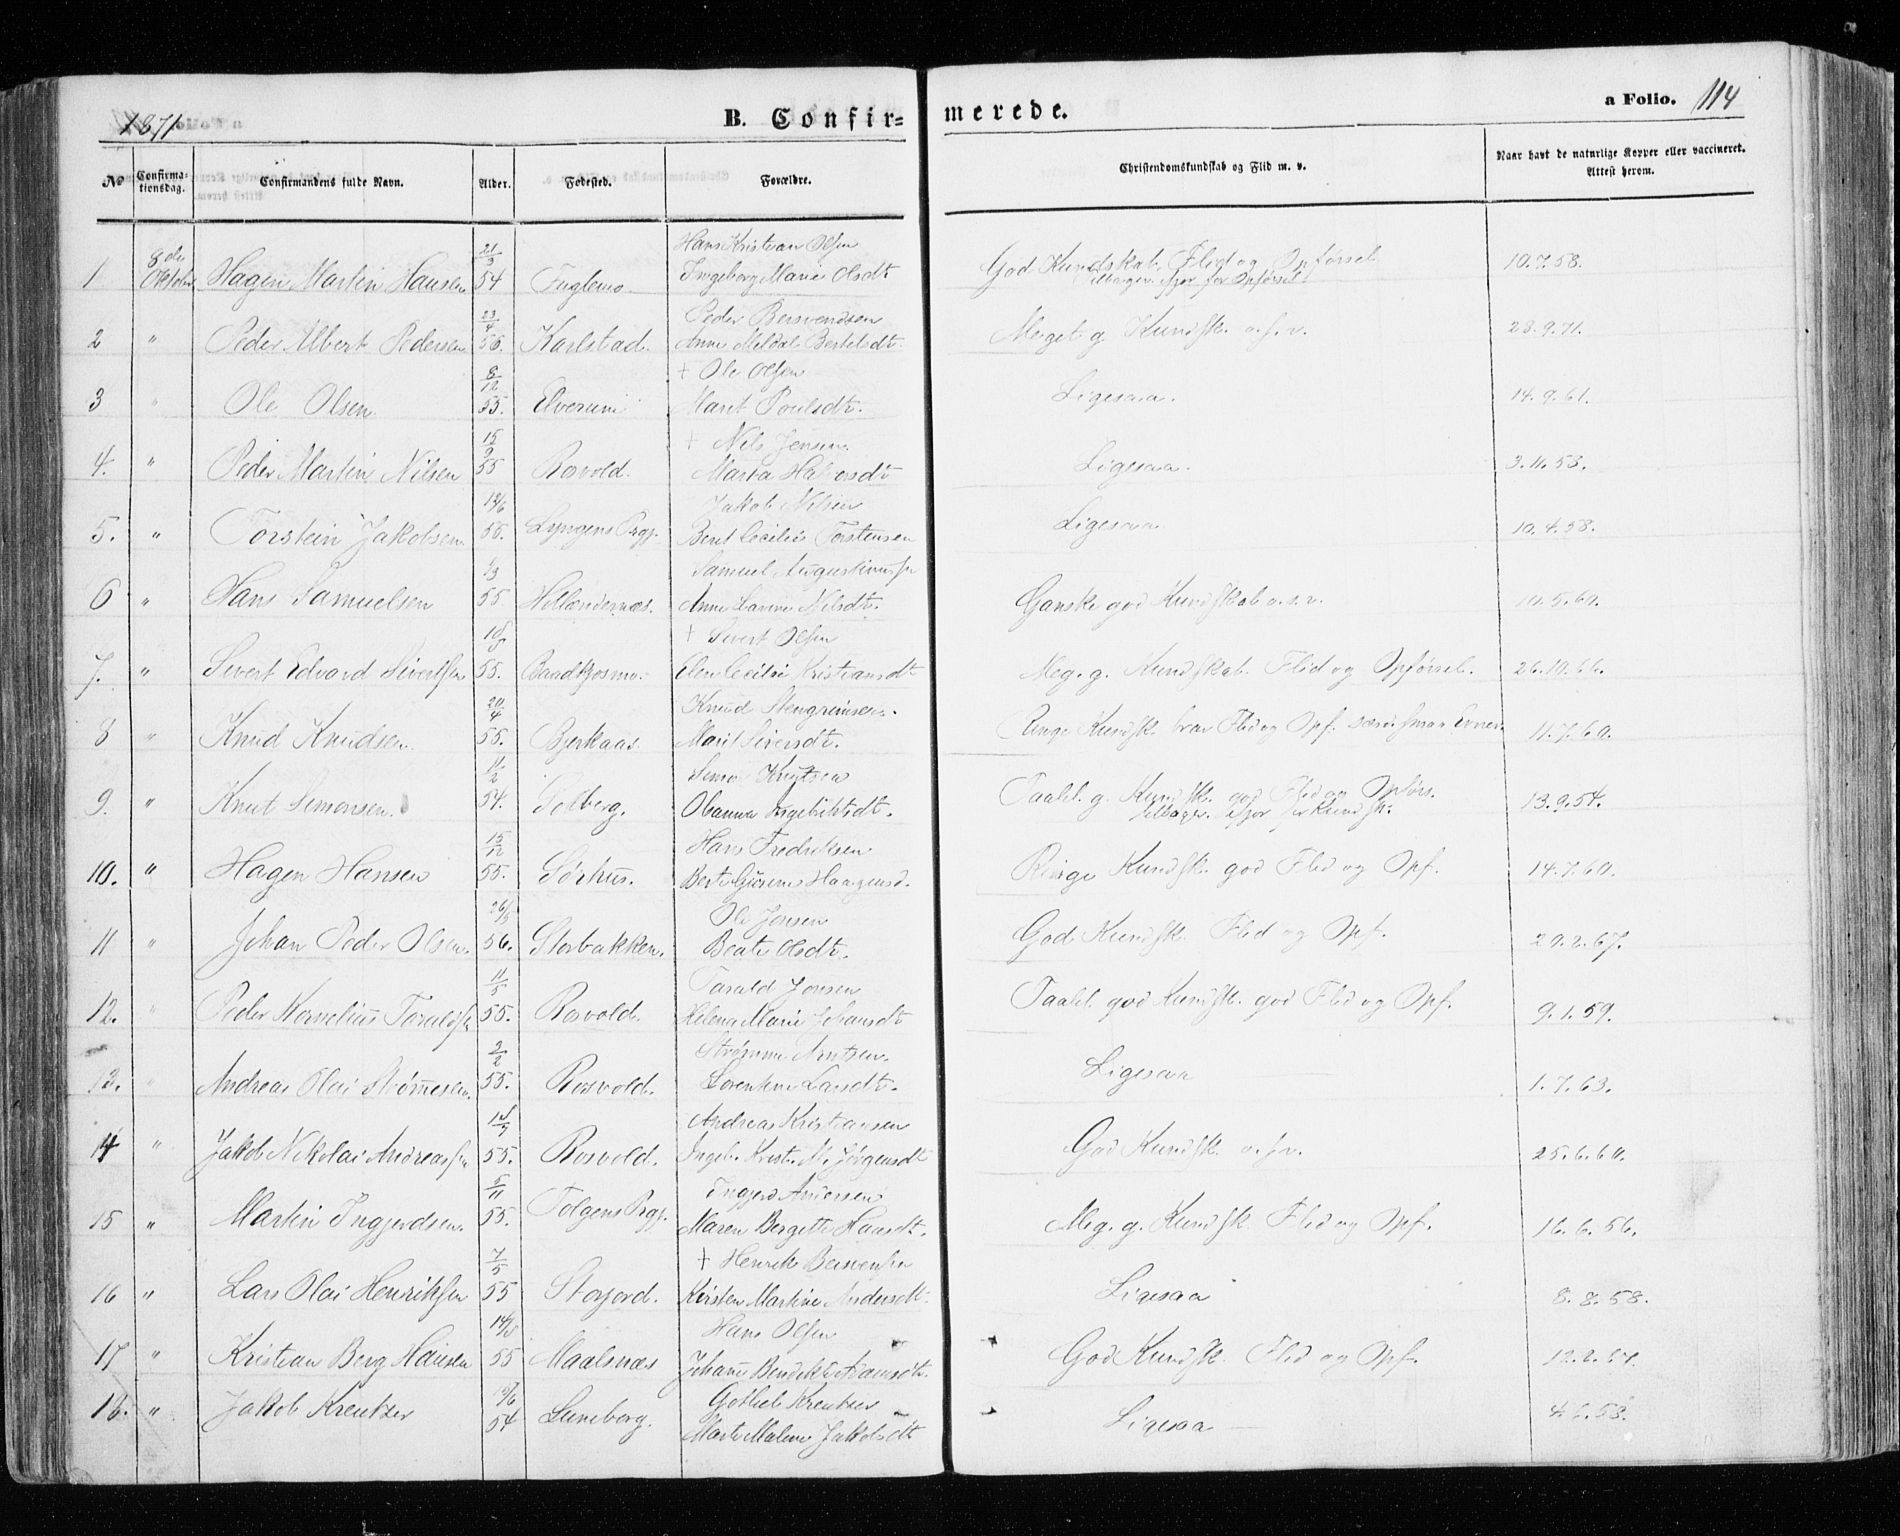 1871
B. Confirmerede.
a Folio. 114
No Confirmationsdag. Confirmandens fulde Navn. Alder. Fødested. Forældre. Christendomskundskab og Flid m. v. Naar havt de naturlige Kopper eller vaccineret. Attest herom.
21/3 Hans Kristian Olsen
1 8de Oktober Hagen Martin Hansen 54 Fuglemo Ingeborg Marie Olsdt God Kundskab, Flid og Opførsel 10.7.58.
tilbagev. ifjor for Opførsel
23/4 Peder Bersvendsen
2 " Peder Albert Pedersen 56 Karlstad. Anne Meldal Bertelsdt. Meget g. Kundsk. o.s.v. 28.9.71.
8/12 + Ole Olsen
3 " Ole Olsen 55. Elverum Marit Poulsdt. Ligesaa. 14.9.61.
15/9 + Nils Jensen
4. " Peder Martin Nilsen 55 Rosvold. Marta Halvorsdt Ligesaa. 3.11.58.
12/6 Jakob Nilsen
5. " Torstein Jakobsen 55. Lyngens Prgj. Berit Cecilie Torstensen Ligesaa 10.4.58.
Samuel Augustinussen
6 " Hans Samuelsen 55. Hollendernæs. Anne Lavine Nilsdt. Ganske god Kundskab o.s.v. 10.5.60.
+ Sivert Olsen
7. " Sivert Edvard Sivertsen 55. Baadkjosmo. Elen Cecilie Kristiansdt Meg. g. Kundskab. Flid og Opførsel. 26.10.66.
20/4 Knud Stengrimsen.
8 " Knud Knudsen 55. Bjerkaas Marit Siversdt. Ringe Kundsk. brav Flid og Opf. særd. smaa Evner. 11.7.60.
11/2 Simon Knutsen
9. " Knut Simonsen. 54. Solberg. Olianna Ingebrigtsdt. Taalel. g. Kundsk. god Flid og Opførs. 13.9.54.
tilbagev. ifjor for Kundsk.
15/12 Hans Fredriksen
10. " Hagen Hansen 55. Sørhus. Berte Gurine Haagensd. Ringe Kundsk. god Flid og Opf. 14.7.60.
26/5 Ole Jonsen
11 " Johan Peder Olsen. 56. Storbakken. Beate Olsdt. God Kundsk. Flid og Opf. 20.2.67.
11/5 Tarald Jonsen
12. " Peder Kornelius Taraldsen 55. Rosvold. Helena Marie Johansdt Taalel. god Kundsk. god Flid og Opf. 9.1.59.
2/2 Strømme Arntsen.
13. " Andreas Olai Strømmesen. 55. Rosvold. Lorentine Larsdt. Ligesaa 1.7.63.
Andreas Kristiansen
14 " Jakob Nikolai Andreassen 55. Rosvold. Ingeb. Krist. M. Jørgensdt God Kundsk. o.s.v. 25.6.60.
5/11 Ingjerd Andersen
15 " Martin Ingjerdsen. 55. Tolgens Prgj. Maren Bergitte Hansdt. Meg. g. Kundsk. Flid og Opf. 16.6.56.
7/5 + Henrik Bersvensen
16 " Lars Olai Henriksen 55 Storjord. Kirsten Martine Andersdt. Ligesaa 8.8.58.
14/5 Hans Olsen
17 " Kristian Berg Hansen 55 Maalsnæs Johanne Bendikte Adamsdt. God Kundsk. Flid og Opf.
Gotlieb Kreutzer
18. " Jakob Kreutzer 54 Luneborg. Marte Malene Jakobsdt Ligesaa 4.6.58.